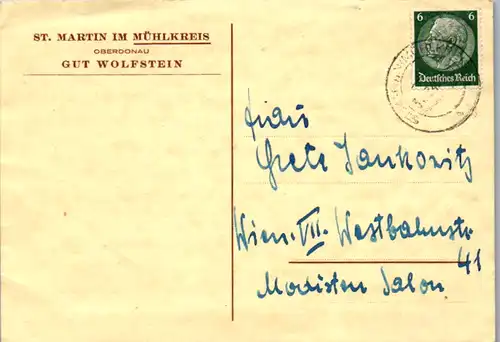 ST. MARTIN IM MÜHLKREIS
OBERDONAU
GUT WOLFSTEIN
6 6
Deutsches Reich
Frau
Grete Jankowitz
Wien. VII. Westbahnstr.
41
Modisten Salon